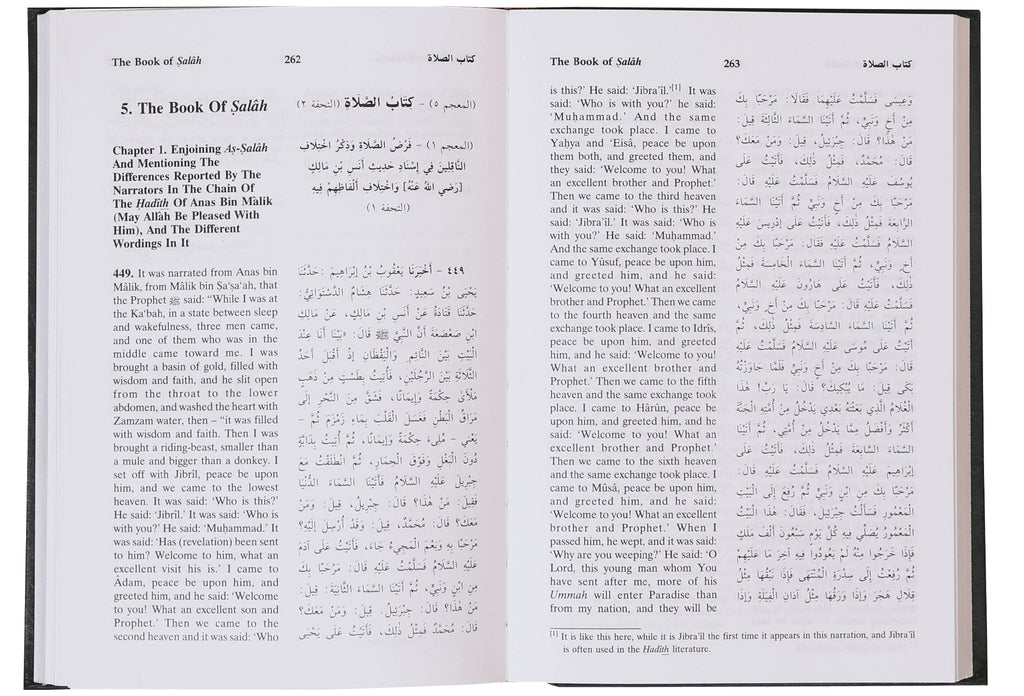 The Book of Ṣalâh 262 كتاب الصلاة
5. The Book Of Ṣalâh
(المعجم ٥) - كتَابُ الصَّلَاةِ (التحفة ٢)
Chapter 1. Enjoining Aṣ-Ṣalâh
And Mentioning The
Differences Reported By The
Narrators In The Chain Of
The Ḥadîth Of Anas Bin Mâlik
(May Allâh Be Pleased With
Him), And The Different
Wordings In It
(المعجم ١) - فَرْضُ الصَّلَاةِ وَذِكْرُ اخْتِلَافِ
النَّاقِلِينَ فِي إِسْنَادِ حَدِيثِ أَنَسِ بْنِ مَالِكٍ
[رَضِيَ اللهُ عَنْهُ] وَاخْتِلَافِ أَلْفَاظِهِمْ فِيهِ
(التحفة ١)
449. It was narrated from Anas bin
Mâlik, from Mâlik bin Ṣa'ṣa'ah, that
the Prophet ﷺ said: "While I was at
the Ka'bah, in a state between sleep
and wakefulness, three men came,
and one of them who was in the
middle came toward me. I was
brought a basin of gold, filled with
wisdom and faith, and he slit open
from the throat to the lower
abdomen, and washed the heart with
Zamzam water, then – "it was filled
with wisdom and faith. Then I was
brought a riding-beast, smaller than
a mule and bigger than a donkey. I
set off with Jibrîl, peace be upon
him, and we came to the lowest
heaven. It was said: 'Who is this?'
He said: 'Jibrîl.' It was said: 'Who is
with you?' He said: 'Muḥammad.' It
was said: 'Has (revelation) been sent
to him? Welcome to him, what an
excellent visit his is.' I came to
Âdam, peace be upon him, and
greeted him, and he said: 'Welcome
to you! What an excellent son and
Prophet.' Then we came to the
second heaven and it was said: 'Who
٤٤٩ - أَخْبَرَنَا يَعْقُوبُ بْنُ إِبْرَاهِيمَ: حَدَّثَنَا
يَحْيَى بْنُ سَعِيدٍ: حَدَّثَنَا هِشَامٌ الدَّسْتَوَائِيُّ:
حَدَّثَنَا قَتَادَةُ عَنْ أَنَسِ بْنِ مَالِكٍ، عَنْ مَالِكِ
ابْنِ صَعْصَعَةَ أَنَّ النَّبِيَّ ﷺ قَالَ: «بَيْنَا أَنَا عِنْدَ
الْبَيْتِ بَيْنَ النَّائِمِ وَالْيَقْظَانِ إِذْ أَقْبَلَ أَحَدُ
الثَّلَاثَةِ بَيْنَ الرَّجُلَيْنِ، فَأُتِيتُ بِطَسْتٍ مِنْ ذَهَبٍ
مَلْأَىٰ حِكْمَةً وَإِيمَانًا، فَشَقَّ مِنَ النَّحْرِ إِلَى
مَرَاقِّ الْبَطْنِ فَغَسَلَ الْقَلْبَ بِمَاءِ زَمْزَمَ ثُمَّ -
يَعْنِي - مُلِيءَ حِكْمَةً وَإِيمَانًا، ثُمَّ أُتِيتُ بِدَابَّةٍ
دُونَ الْبَغْلِ وَفَوْقَ الْحِمَارِ، ثُمَّ انْطَلَقْتُ مَعَ
جِبْرِيلَ عَلَيْهِ السَّلَامُ فَأَتَيْنَا السَّمَاءَ الدُّنْيَا
فَقِيلَ: مَنْ هٰذَا؟ قَالَ: جِبْرِيلُ، قِيلَ: وَمَنْ
مَعَكَ؟ قَالَ: مُحَمَّدٌ، قِيلَ: وَقَدْ أُرْسِلَ إِلَيْهِ؟
مَرْحَبًا بِهِ وَنِعْمَ الْمَجِيءُ جَاءَ، فَأَتَيْتُ عَلَى آدَمَ
عَلَيْهِ السَّلَامُ فَسَلَّمْتُ عَلَيْهِ، قَالَ: مَرْحَبًا بِكَ
مِنِ ابْنٍ وَنَبِيٍّ، ثُمَّ أَتَيْنَا السَّمَاءَ الثَّانِيَةَ: قِيلَ:
مَنْ هٰذَا؟ قَالَ: جِبْرَئِيلُ، قِيلَ: وَمَنْ مَعَكَ؟
قَالَ: مُحَمَّدٌ فَمِثْلُ ذٰلِكَ، فَأَتَيْتُ عَلَى يَحْيَى
The Book of Ṣalâh 263 كتاب الصلاة
is this?' He said: 'Jibra'îl.'[1] It was
said: 'Who is with you?' he said:
'Muḥammad.' And the same
exchange took place. I came to
Yaḥya and 'Eisâ, peace be upon
them both, and greeted them, and
they said: 'Welcome to you! What
an excellent brother and Prophet.'
Then we came to the third heaven
and it was said: 'Who is this?' He
said: 'Jibra'îl.' It was said: 'Who is
with you?' He said: 'Muḥammad.'
And the same exchange took place. I
came to Yûsuf, peace be upon him,
and greeted him, and he said:
'Welcome to you! What an excellent
brother and Prophet.' Then we came
to the fourth heaven and the same
exchange took place. I came to Idrîs,
peace be upon him, and greeted
him, and he said: 'Welcome to you!
What an excellent brother and
Prophet.' Then we came to the fifth
heaven and the same exchange took
place. I came to Hârûn, peace be
upon him, and greeted him, and he
said: 'Welcome to you! What an
excellent brother and Prophet.'
Then we came to the sixth heaven
and the same exchange took place. I
came to Mûsâ, peace be upon him,
and greeted him, and he said:
'Welcome to you! What an excellent
brother and Prophet.' When I
passed him, he wept, and it was said:
'Why are you weeping?' He said: 'O
Lord, this young man whom You
have sent after me, more of his
Ummah will enter Paradise than
from my nation, and they will be
وَعِيسَى فَسَلَّمْتُ عَلَيْهِمَا فَقَالَا: مَرْحَبًا بِكَ
مِنْ أَخٍ وَنَبِيٍّ، ثُمَّ أَتَيْنَا السَّمَاءَ الثَّالِثَةَ قِيلَ:
مَنْ هٰذَا؟ قَالَ: جِبْرَئِيلُ، قِيلَ: وَمَنْ مَعَكَ؟
قَالَ: مُحَمَّدٌ، فَمِثْلُ ذٰلِكَ، فَأَتَيْتُ عَلَى
يُوسُفَ عَلَيْهِ السَّلَامُ فَسَلَّمْتُ عَلَيْهِ قَالَ:
مَرْحَبًا بِكَ مِنْ أَخٍ وَنَبِيٍّ ثُمَّ أَتَيْنَا السَّمَاءَ
الرَّابِعَةَ فَمِثْلُ ذٰلِكَ، فَأَتَيْتُ عَلَى إِدْرِيسَ عَلَيْهِ
السَّلَامُ فَسَلَّمْتُ عَلَيْهِ فَقَالَ: مَرْحَبًا بِكَ مِنْ
أَخٍ وَنَبِيٍّ، ثُمَّ أَتَيْنَا السَّمَاءَ الْخَامِسَةَ فَمِثْلُ
ذٰلِكَ، فَأَتَيْتُ عَلَى هَارُونَ عَلَيْهِ السَّلَامُ
فَسَلَّمْتُ عَلَيْهِ قَالَ: مَرْحَبًا بِكَ مِنْ أَخٍ وَنَبِيٍّ،
ثُمَّ أَتَيْنَا السَّمَاءَ السَّادِسَةَ فَمِثْلُ ذٰلِكَ، ثُمَّ
أَتَيْتُ عَلَى مُوسَى عَلَيْهِ السَّلَامُ فَسَلَّمْتُ عَلَيْهِ
فَقَالَ: مَرْحَبًا بِكَ مِنْ أَخٍ وَنَبِيٍّ فَلَمَّا جَاوَزْتُهُ
بَكَى قِيلَ: مَا يُبْكِيكَ؟ قَالَ: يَا رَبِّ! هٰذَا
الْغُلَامُ الَّذِي بَعَثْتَهُ بَعْدِي يَدْخُلُ مِنْ أُمَّتِهِ الْجَنَّةَ
أَكْثَرُ وَأَفْضَلُ مِمَّا يَدْخُلُ مِنْ أُمَّتِي، ثُمَّ أَتَيْنَا
السَّمَاءَ السَّابِعَةَ فَمِثْلُ ذٰلِكَ، فَأَتَيْتُ عَلَى
إِبْرَاهِيمَ عَلَيْهِ السَّلَامُ فَسَلَّمْتُ عَلَيْهِ قَالَ:
مَرْحَبًا بِكَ مِنِ ابْنٍ وَنَبِيٍّ ثُمَّ رُفِعَ إِلَى الْبَيْتِ
الْمَعْمُورِ فَسَأَلْتُ جِبْرَئِيلَ، فَقَالَ: هٰذَا الْبَيْتُ
الْمَعْمُورُ يُصَلِّي فِيهِ كُلَّ يَوْمٍ سَبْعُونَ أَلْفَ مَلَكٍ
فَإِذَا خَرَجُوا مِنْهُ لَمْ يَعُودُوا فِيهِ آخِرَ مَا عَلَيْهِمْ
ثُمَّ رُفِعْتُ إِلَى سِدْرَةِ الْمُنْتَهَى فَإِذَا نَبْقُهَا مِثْلُ
قِلَالِ هَجَرَ وَإِذَا وَرَقُهَا مِثْلُ آذَانِ الْفِيَلَةِ وَإِذَا
[1] It is like this here, while it is Jibra'îl the first time it appears in this narration, and Jibra'îl
is often used in the Ḥadîth literature.